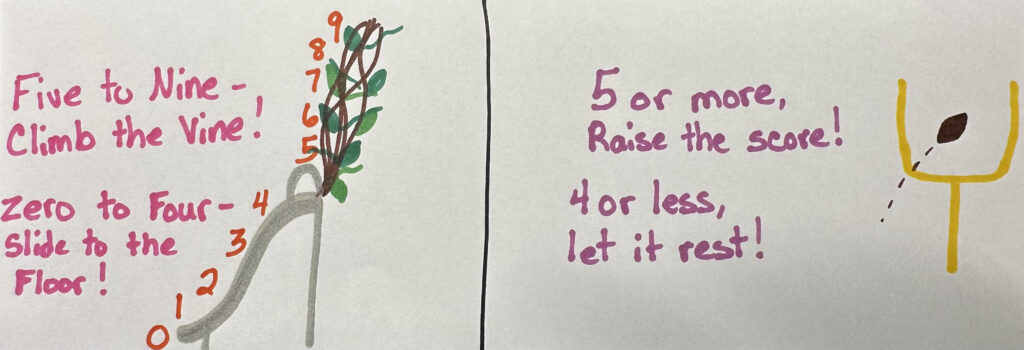 Five to Nine -
Climb the Vine!
Zero to Four-
Slide to the
Floor!
9
8
7
6
5
4
3
2
1
0
5 or more,
Raise the score!
4 or less,
let it rest!